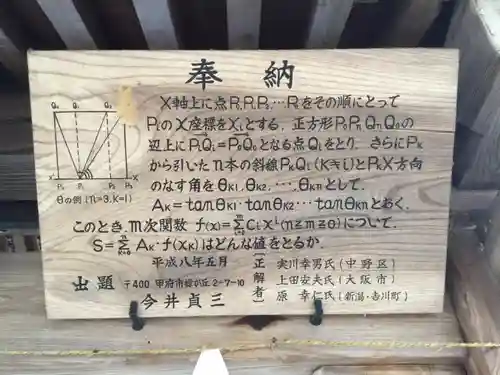 奉納
X軸上に点P₀P₁P₂…Pₙをその順にとって
PᵢのX座標をXᵢとする. 正方形P₀PₙQₙQ₀の
辺上にPᵢQᵢ=P₀Q₀となる点Qᵢをとり. さらにPₖ
から引いたn本の斜線PₖQᵢ(K≠i)とPₖX方向
のなす角をθₖ₁,θₖ₂,…,θₖₙとして.
Aₖ=tanθₖ₁·tanθₖ₂…tanθₖₙとおく.
このとき.m次関数 f(x)=Σcᵢxⁱ(n≧m≧0)について.
S=ΣAₖ·f(Xₖ)はどんな値をとるか.
θの例(n=3.K=1)
平成八年五月
出題
〒400 甲府市緑が丘2-7-10
今井貞三
(正解者)
実川幸男氏(中野区)
上田安夫氏(大阪市)
原 幸仁氏(新潟·吉川町)